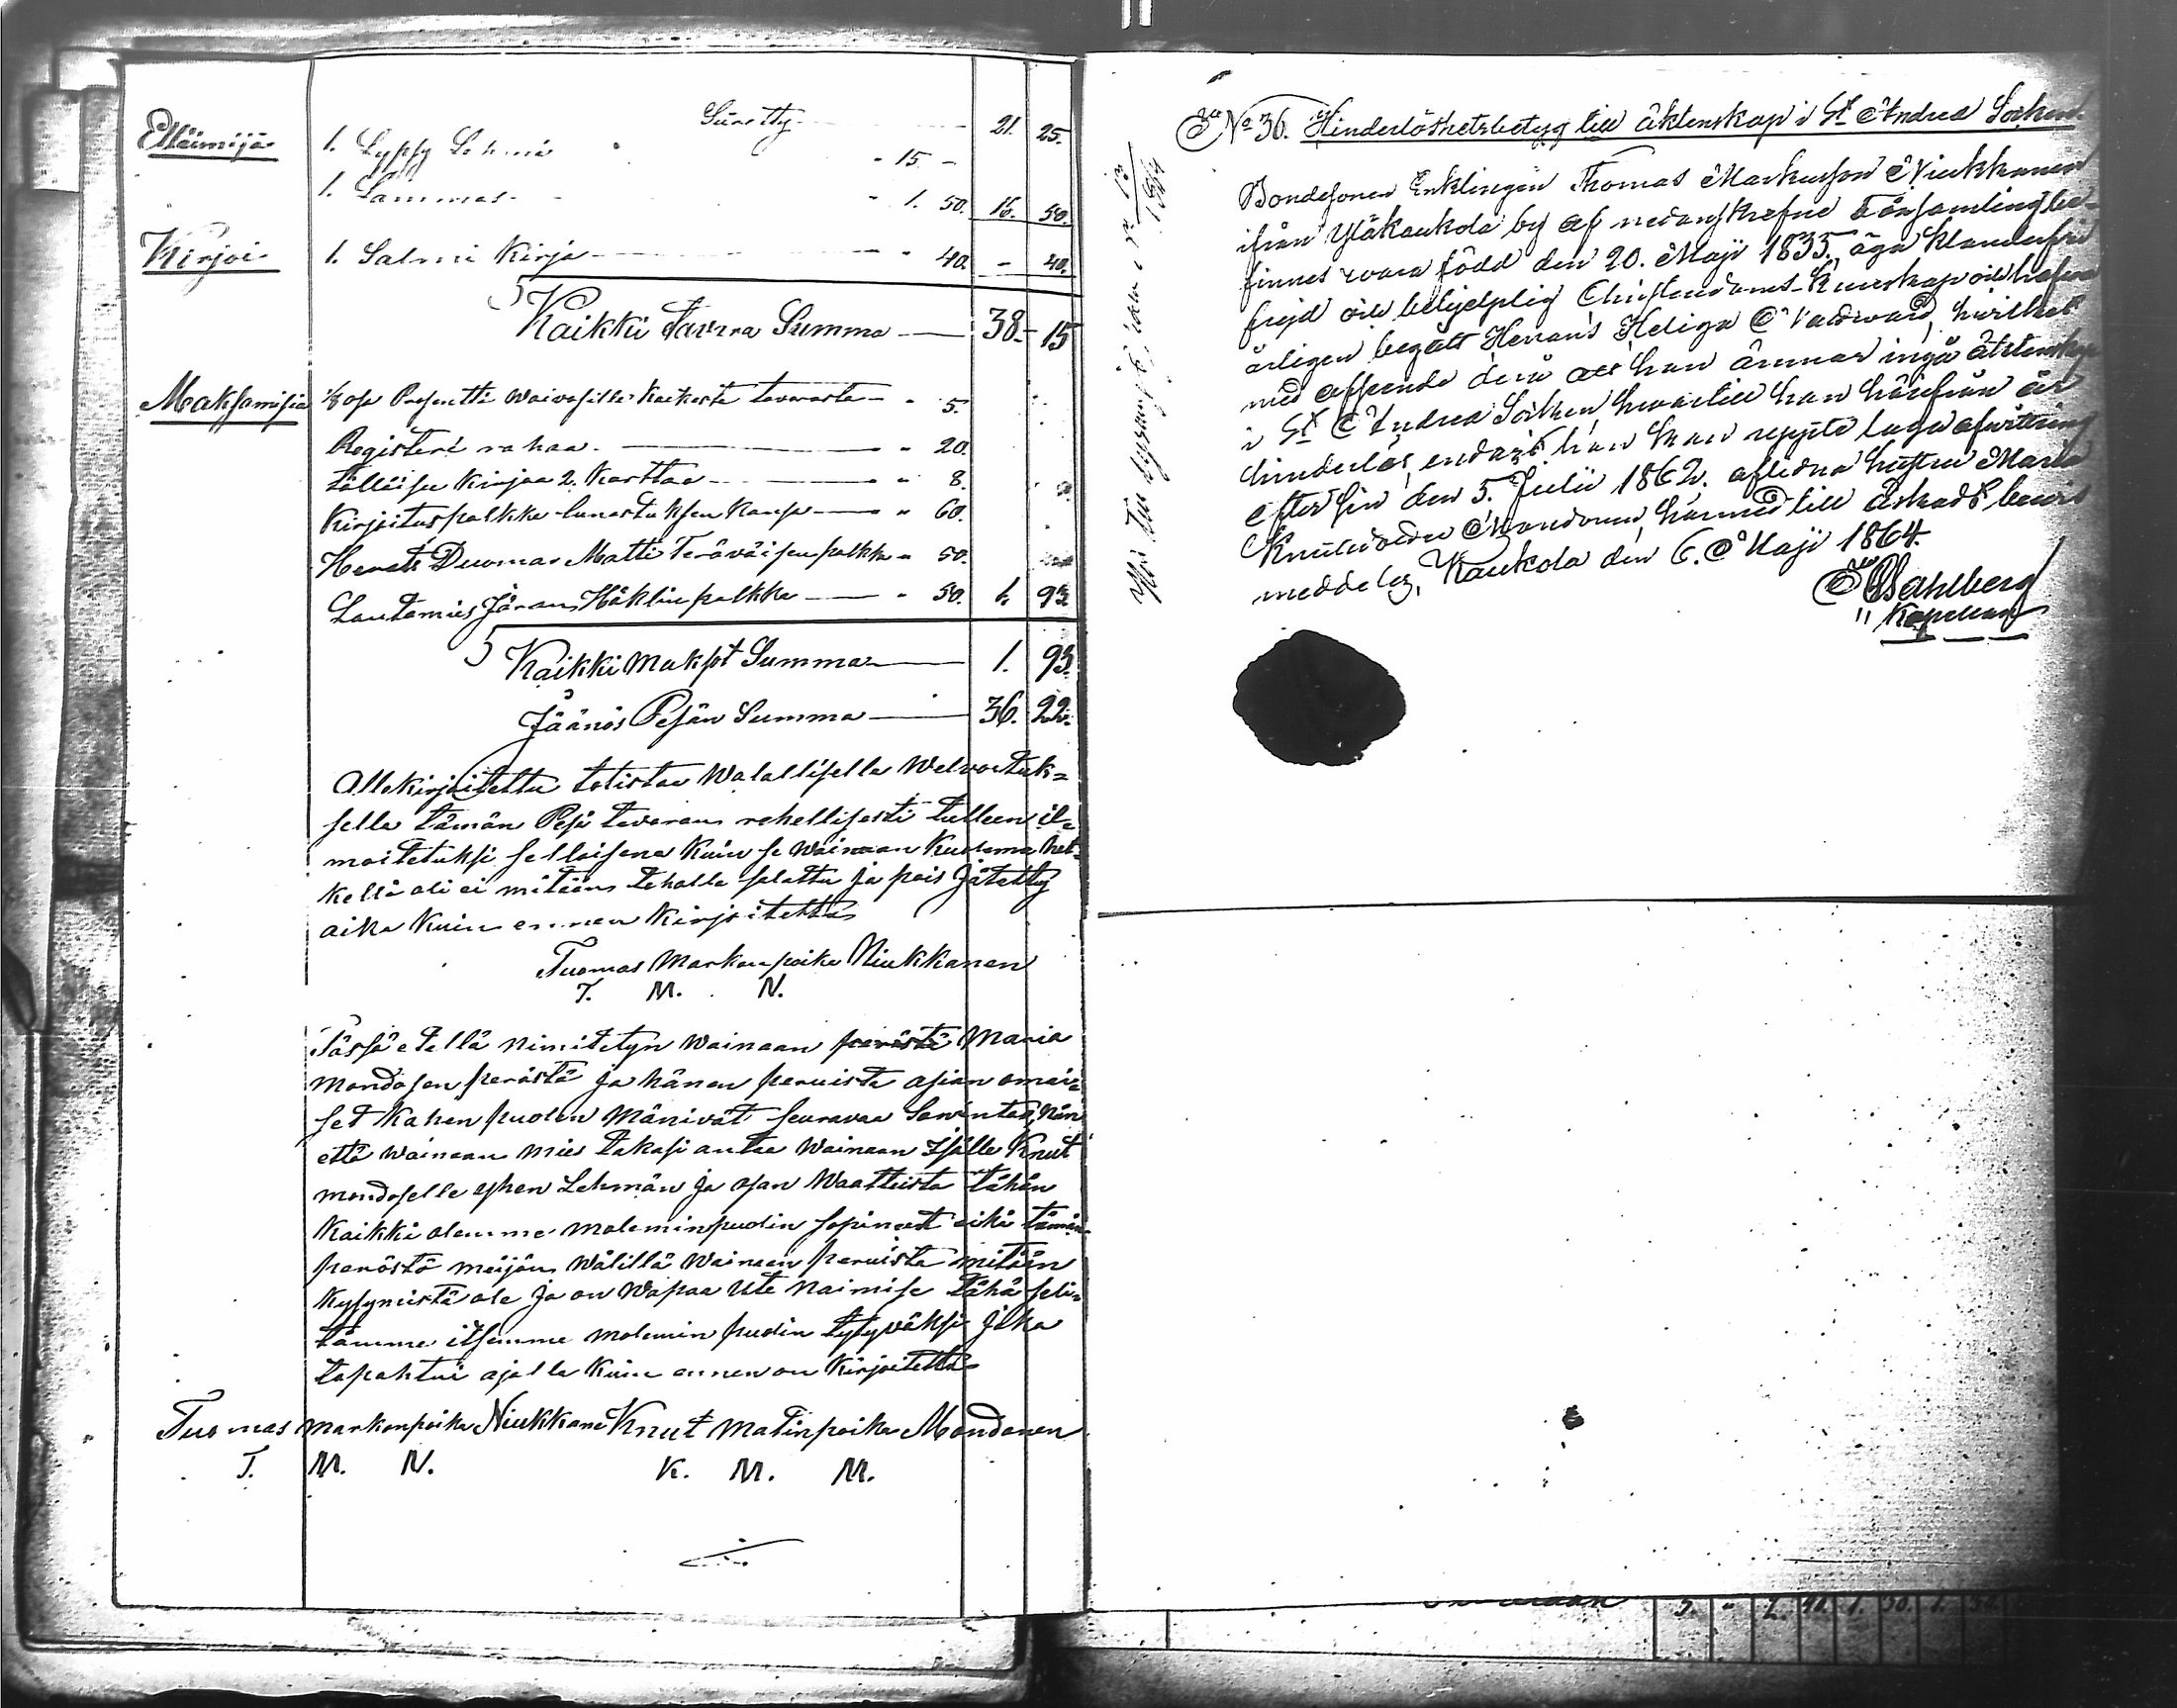 Süretty 21. 25.
Elläimijä 1. Lypsy Lehmä - 15 -
1. Lammas - 1. 50. 16. 50.
Kirjoi 1. Salmi Kirja - 40. - 40.
Kaikki Tavara Summa 38 - 15
Maksamisia 1/8 osa Prosentti waivasille kaikesta tavarasta - " 5.
Registeri rahaa. " 20.
tälläisen kirjaa 2. karttaa " 8.
Kirjoituspalkka lunastuksen kansa " 60.
Herasts Duomar Matti Teräväisen palkka " 50.
Lautamies Jöran Häklin palkka " 50. 1. 93.
Kaikki maksot Summa 1. 93.
Jäänös Pesän Summa 36. 22.
Allekirjoitettu totistaa Walallisella Welvoituk=
sella tämän Pesä tavaran rehellisesti tulleen il=
moitetuksi sellaisena kuin se wainaan kuolema het=
kellä oli ei mitään tehalla salattu ja pois jätetty
aika kuin ennen kirjoitettu
Tuomas Markunpoika Niukkanen
T. M. N.
Tässä etellä nimitetyn wainaan perästä Maria
Mondosen perästä ja hänen peruista asian omai=
set kahen puolen mänivät seuravaa Sowintoo, niin
että wainaan mies lakasi antaa wainaan Isälle Knut
mondoselle yhen Lehmän ja osan Waatteista tähän
kaikki olemme moleminpuolin sopineet eikä tämän
perästä meijän wälillä wainaan peruista mitään
kysymistä ole ja on wapaa Ute naimise tähä seli=
tämme itsemme molemin puolin tytyväksi joka
tapahtui ajalla kuin ennen on kirjoitettu
Tuomas markonpoika Niukkane Knut Matinpoika Mondonen
T. M. N. K. M. M.
No 36. Hinderlöshetsbetyg till äktenskap i St Andreæ Socken
Bondesonen Enklingen Thomas Markusson Niukkanen
ifrån Yläkaukola by af nedanskrefne Församling be-
finnes wara född den 20. Maji 1835, äga klanderfri
frejd och behjelplig Christendoms-kunskap och hafwa
årligen begått Herrans Heliga Nattward, hwilket
med afseende derå att han ämnar ingå äktenskap
i St Andreæ Socken, hwartill han härifrån är
hinderlös, endast han kan uppte laga afwittring
efter sin den 5. Julii 1862. aflidna hustru Maria
Knutsdotter Mondonen, härmed till äskadt bewis
meddelas, Kaukola den 6. Maji 1864.
Dahlberg
Kapellan